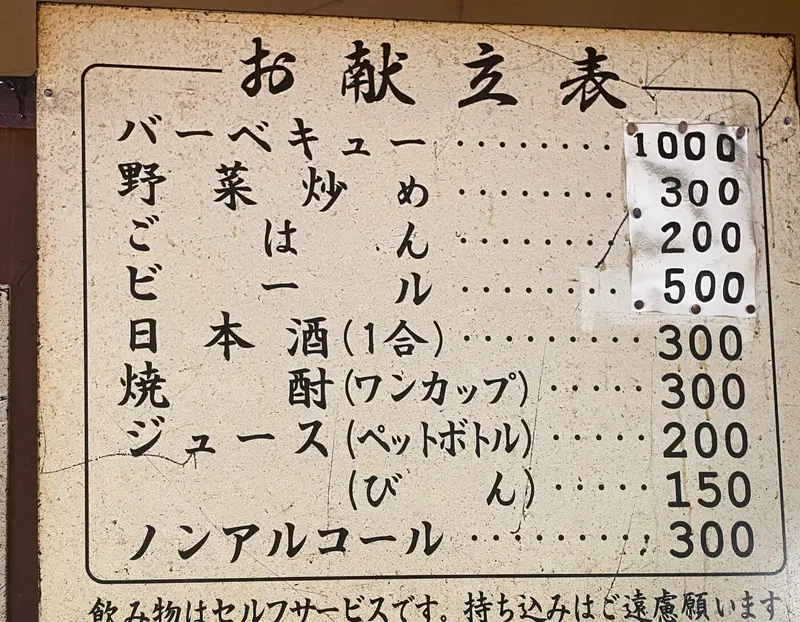 お献立表
バーベキュー………1000
野菜炒め………300
ごはん………200
ビール………500
日本酒(1合)………300
焼酎(ワンカップ)……300
ジュース(ペットボトル)……200
(びん)……150
ノンアルコール………300
飲み物はセルフサービスです。持ち込みはご遠慮願います